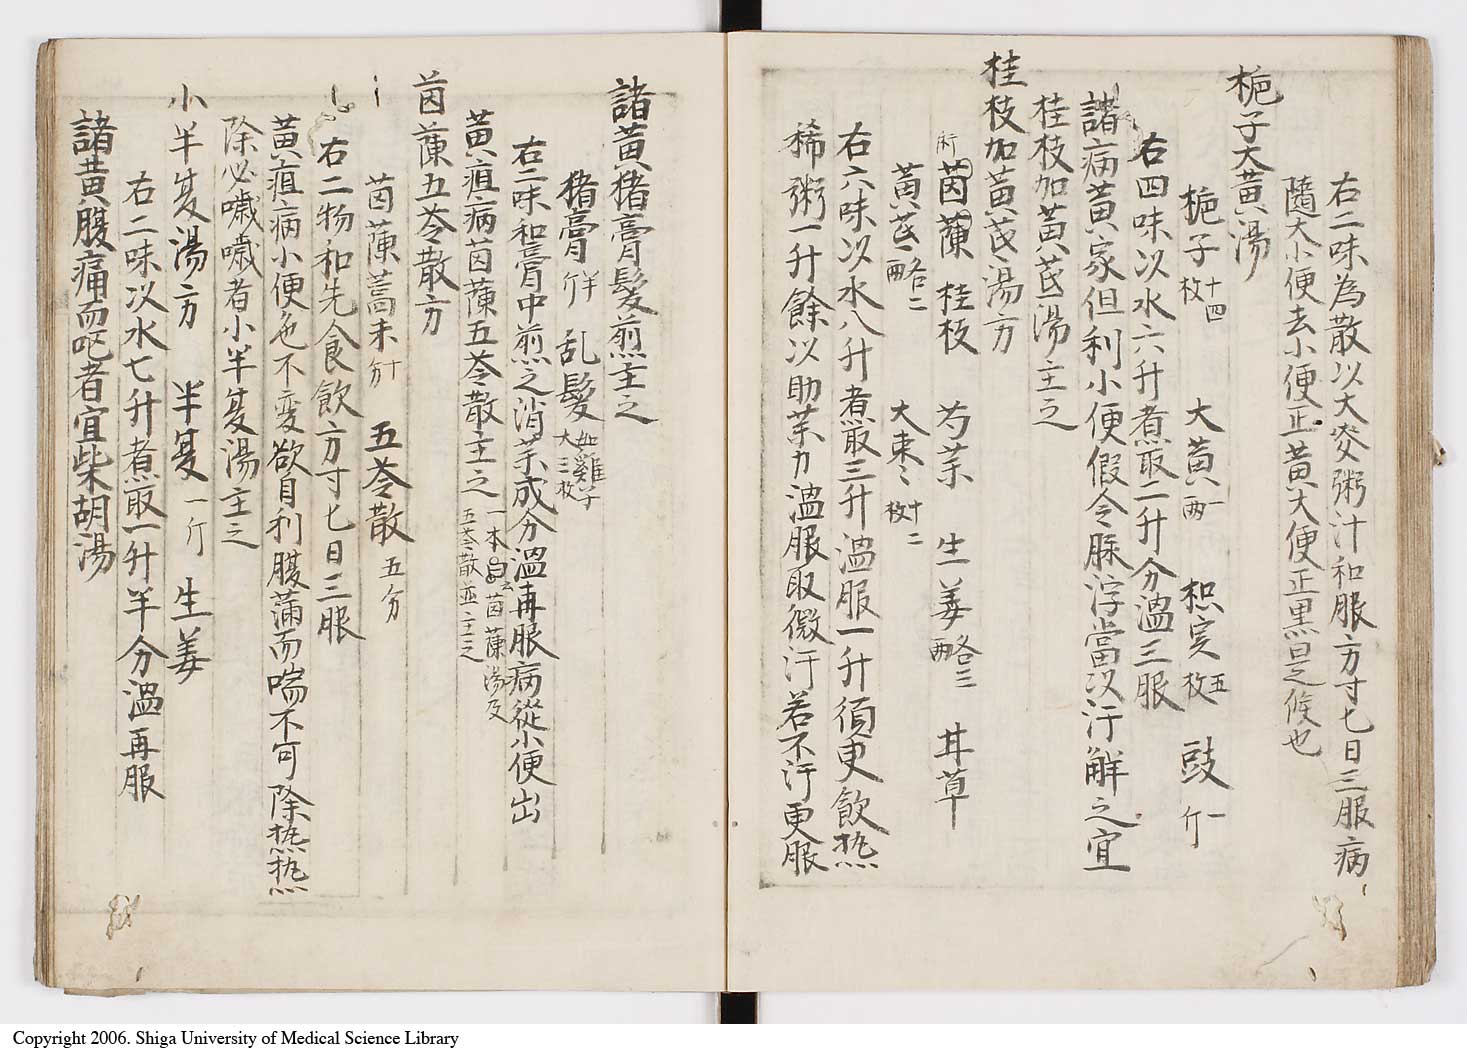 右二味為散以大麥粥汁和服方寸匕日三服病
隨大小便去小便正黃大便正黑是候也
梔子大黃湯
梔子十四枚 大黃一兩 枳実五枚 豉一斤
右四味以水六升煮取二升分溫三服
諸病黃家但利小便假令脉浮當以汗解之宜
桂枝加黃芪湯主之
桂枝加黃芪湯方
茵蔯 桂枝 芍藥 生姜各三兩 甘草
黃芪各二兩 大棗十二枚
右六味以水八升煮取三升溫服一升須更飲热
稀粥一升餘以助茱力溫服取微汗若不汗更服
諸黃猪膏髮煎主之
猪膏半斤 乱髮如雞子大三枚
右二味和膏中煎之消茱成分溫再服病從小便出
黃疸病茵蔯五苓散主之一本茵蔯湯及五苓散並主之
茵蔯五苓散方
茵蔯蒿末十分 五苓散五分
右二物和先食飲方寸匕日三服
黃疸病小便色不変欲自利腹滿而喘不可除热热
除必噦噦者小半夏湯主之
小半夏湯方 半夏一斤 生姜
右二味以水七升煮取一升半分溫再服
諸黃腹痛而吧者宜柴胡湯
Copyright 2006. Shiga University of Medical Science Library